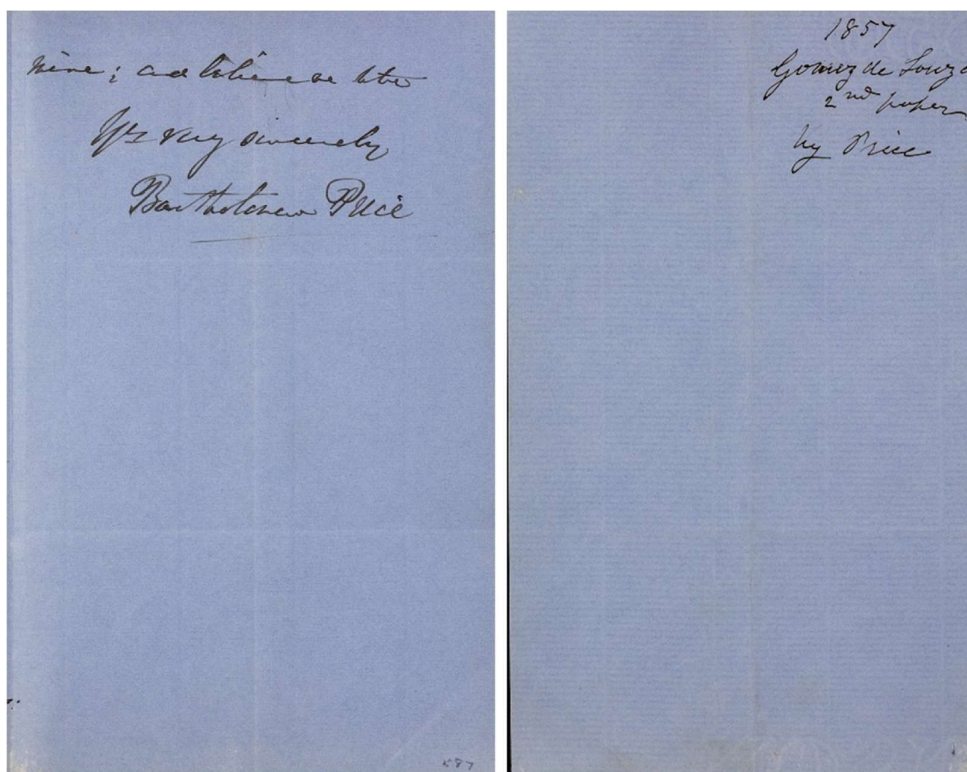 mine; and believe me to be
Yrs very sincerely
Bartholomew Price
1857
Gomez de Souza
2nd paper
by Price